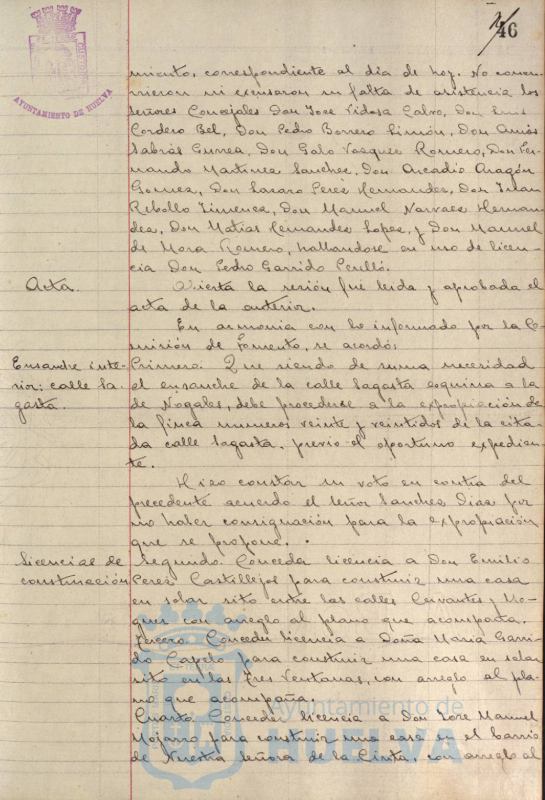 46
AYUNTAMIENTO DE HUELVA
miento, correspondiente al día de hoy. No concu-
rrieron ni excusaron su falta de asistencia los
señores Concejales Don José Vidosa Calvo, Don Luis
Cordero Bel, Don Pedro Borrero Limón, Don Amós
Sabrás Gurrea, Don Galo Vazquez Romero, Don Fer-
nando Martinez Sanchez, Don Arcadio Aragón
Gomez, Don Lazaro Perez Hernandez, Don Juan
Rebollo Jimenez, Don Manuel Narvaez Hernan-
dez, Don Matias Hernandez Lopez, y Don Manuel
de Mora Romero, hallandose en uso de licen-
cia Don Pedro Garrido Perelló.
Acta.
Abierta la sesión fué leida y aprobada el
acta de la anterior.
En armonia con lo informado por la Co-
misión de Fomento, se acordó:
Ensanche inte-
rior: calle Sa-
gasta.
Primero. Que siendo de suma necesidad
el ensanche de la calle Sagasta esquina a la
de Nogales, debe procederse a la expropiación de
la finca numeros veinte y veintidos de la cita-
da calle Sagasta, previo el oportuno expedien-
te.
Hizo constar su voto en contra del
precedente acuerdo el señor Sanchez Diaz por
no haber consignación para la expropiación
que se propone.
Licencias de
construcción
Segundo. Conceder licencia a Don Emilio
Perez Castillejos para construir una casa
en solar sito entre las calles Cervantes y Mo-
guer con arreglo al plano que acompaña.
Tercero. Conceder licencia a Doña Maria Garri-
do Capelo para construir una casa en solar
sito en las Tres Ventanas, con arreglo al pla-
no que acompaña.
Cuarto. Conceder licencia a Don José Manuel
Mojarro para construir una casa en el barrio
de Nuestra Señora de la Cinta, con arreglo al
Ayuntamiento de
HUELVA